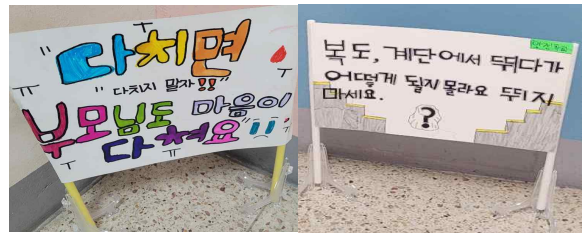 "다치면
"다치지 말자!!"
부모님도 마음이
다쳐요"
복도, 계단에서 뛰다가
어떻게 될지 몰라요 뛰지
마세요.
?